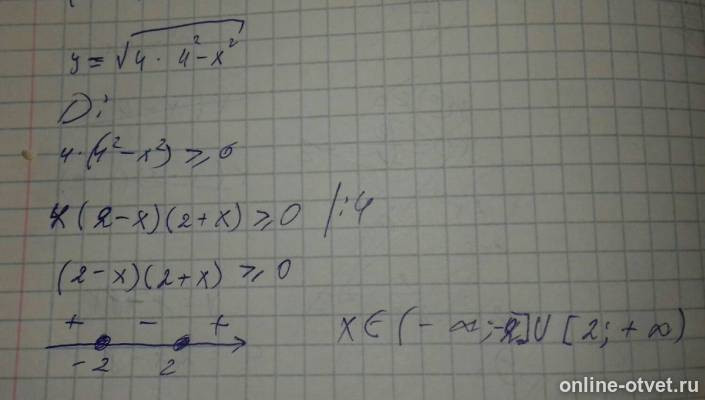 y = √4 · 4² - x²
D:
4 · (4² - x²) ≥ 0
4 (2 - x)(2 + x) ≥ 0 / :4
(2 - x)(2 + x) ≥ 0
+ - +
-2 2
x ∈ (-∞; -2] ∪ [2; +∞)
online-otvet.ru